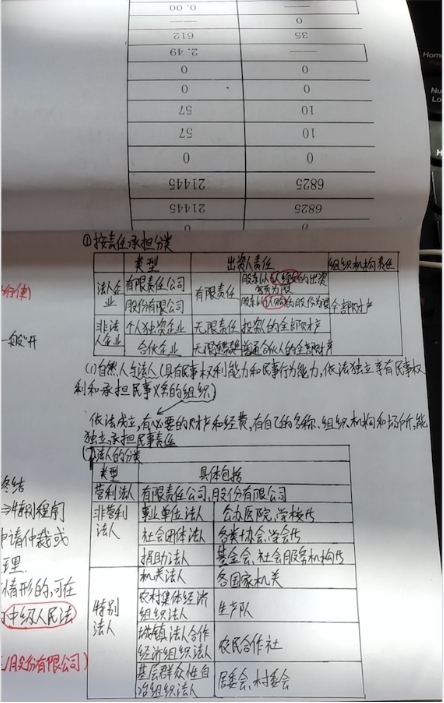 0.00 —
612 35
2.49 —
0 0
0 0
57 10
57 10
0 0
21445 6825
21445 6825
①按责任承担分类
类型 出资人责任 组织机构责任
法人企业 有限责任公司 有限责任 股东以认缴的出资额为限 全部财产
股份有限公司 股东以认购的股份为限
非法人企业 个人独资企业 无限责任 投资人的全部财产
合伙企业 普通合伙人的全部财产
(1)自然人与法人(具有民事权利能力和民事行为能力,依法独立享有民事权
利和承担民事义务的组织)
依法成立,有必要的财产和经费,有自己的名称、组织机构和场所,能
独立承担民事责任
法人的分类
类型 具体包括
营利法人 有限责任公司,股份有限公司
非营利法人 事业单位法人 公办医院,学校等
社会团体法人 各类协会,学会等
捐助法人 基金会,社会服务机构等
特别法人 机关法人 各国家机关
农村集体经济组织法人 生产队
城镇法合作经济组织法人 农民合作社
基层群众性自治组织法人 居委会,村委会
终结
特别程序
申请仲裁或
情形的,可在
中级人民法
股份有限公司)